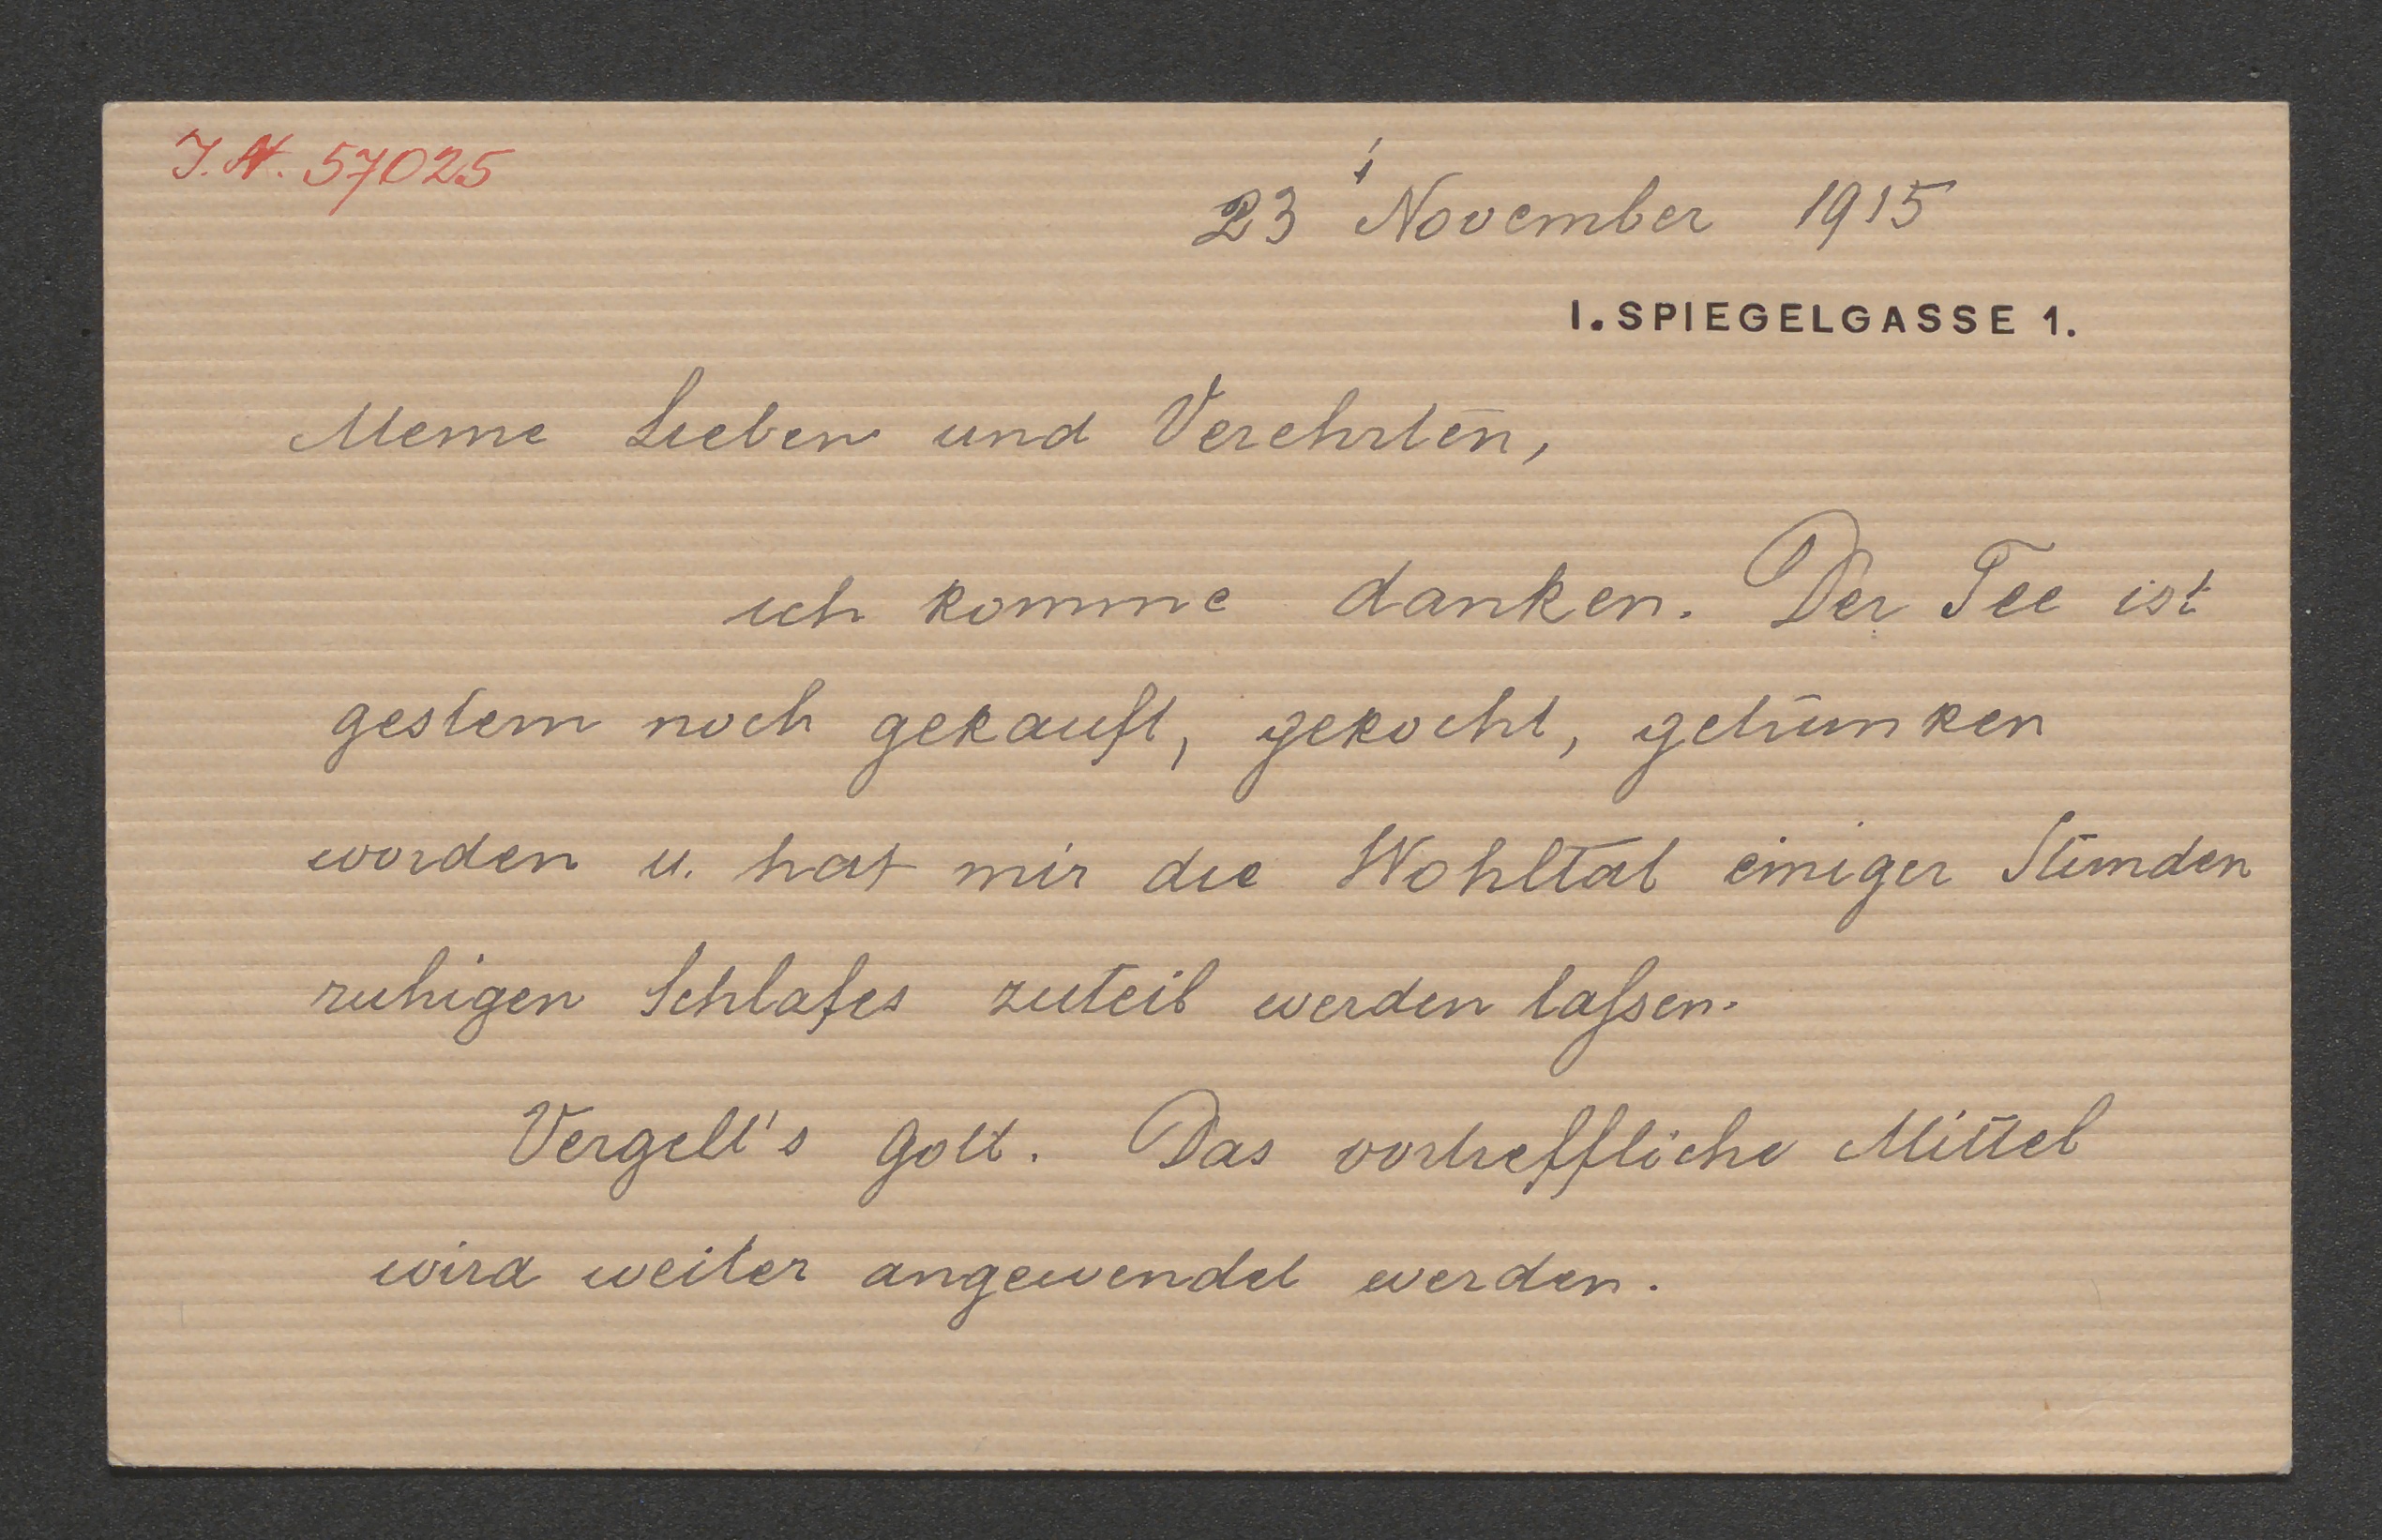 I.N. 57025
23 November 1915
I. SPIEGELGASSE 1.
Meine Lieben und Verehrten,
ich komme danken. Der Tee ist
gestern noch gekauft, gekocht, getrunken
worden u. hat mir die Wohltat einiger Stunden
ruhigen Schlafes zuteil werden laſsen.
Vergelt's Gott. Das vortreffliche Mittel
wird weiter angewendet werden.